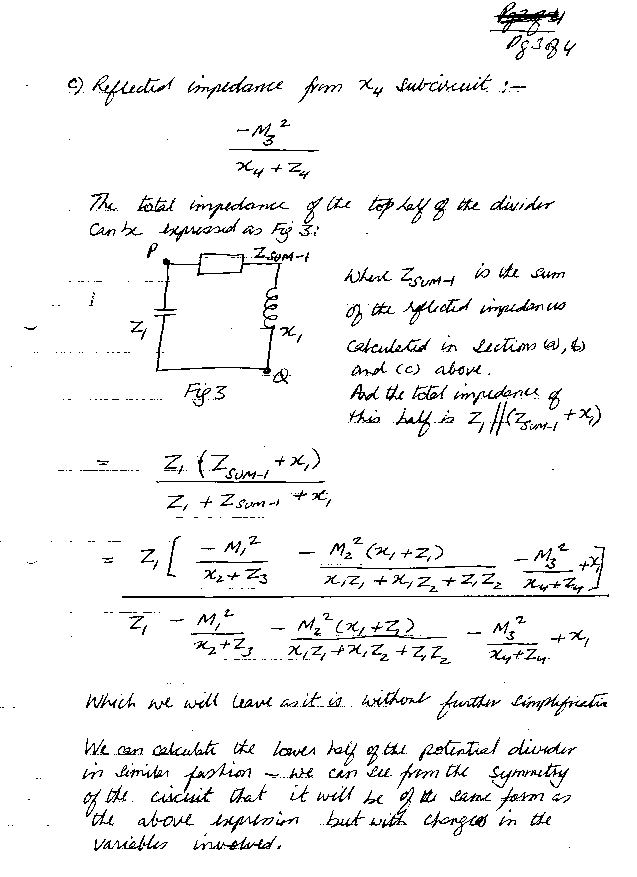 Pg 3 of 4
c) Reflected impedance from x₄ subcircuit :-
-M₃²
x₄ + Z₄
The total impedance of the top half of the divider
can be expressed as Fig 3:
P Z_SUM-1
Z₁ x₁
Q
Fig 3
Where Z_SUM-1 is the sum
of the reflected impedances
calculated in sections (a), b)
and (c) above.
And the total impedance of
this half is Z₁ // (Z_SUM-1 + x₁)
= Z₁ (Z_SUM-1 + x₁)
Z₁ + Z_SUM-1 + x₁
= Z₁ [ -M₁² / (x₂ + Z₃) - M₂² (x₁ + Z₁) / (x₁Z₁ + x₁Z₂ + Z₁Z₂) - M₃² / (x₄ + Z₄) + x₁ ]
Z₁ - M₁² / (x₂ + Z₃) - M₂² (x₁ + Z₁) / (x₁Z₁ + x₁Z₂ + Z₁Z₂) - M₃² / (x₄ + Z₄) + x₁
Which we will leave as it is without further simplificatio
We can calculate the lower half of the potential divider
in similar fashion - we can see from the symmetry
of the circuit that it will be of the same form as
the above expression but with changes in the
variables involved.